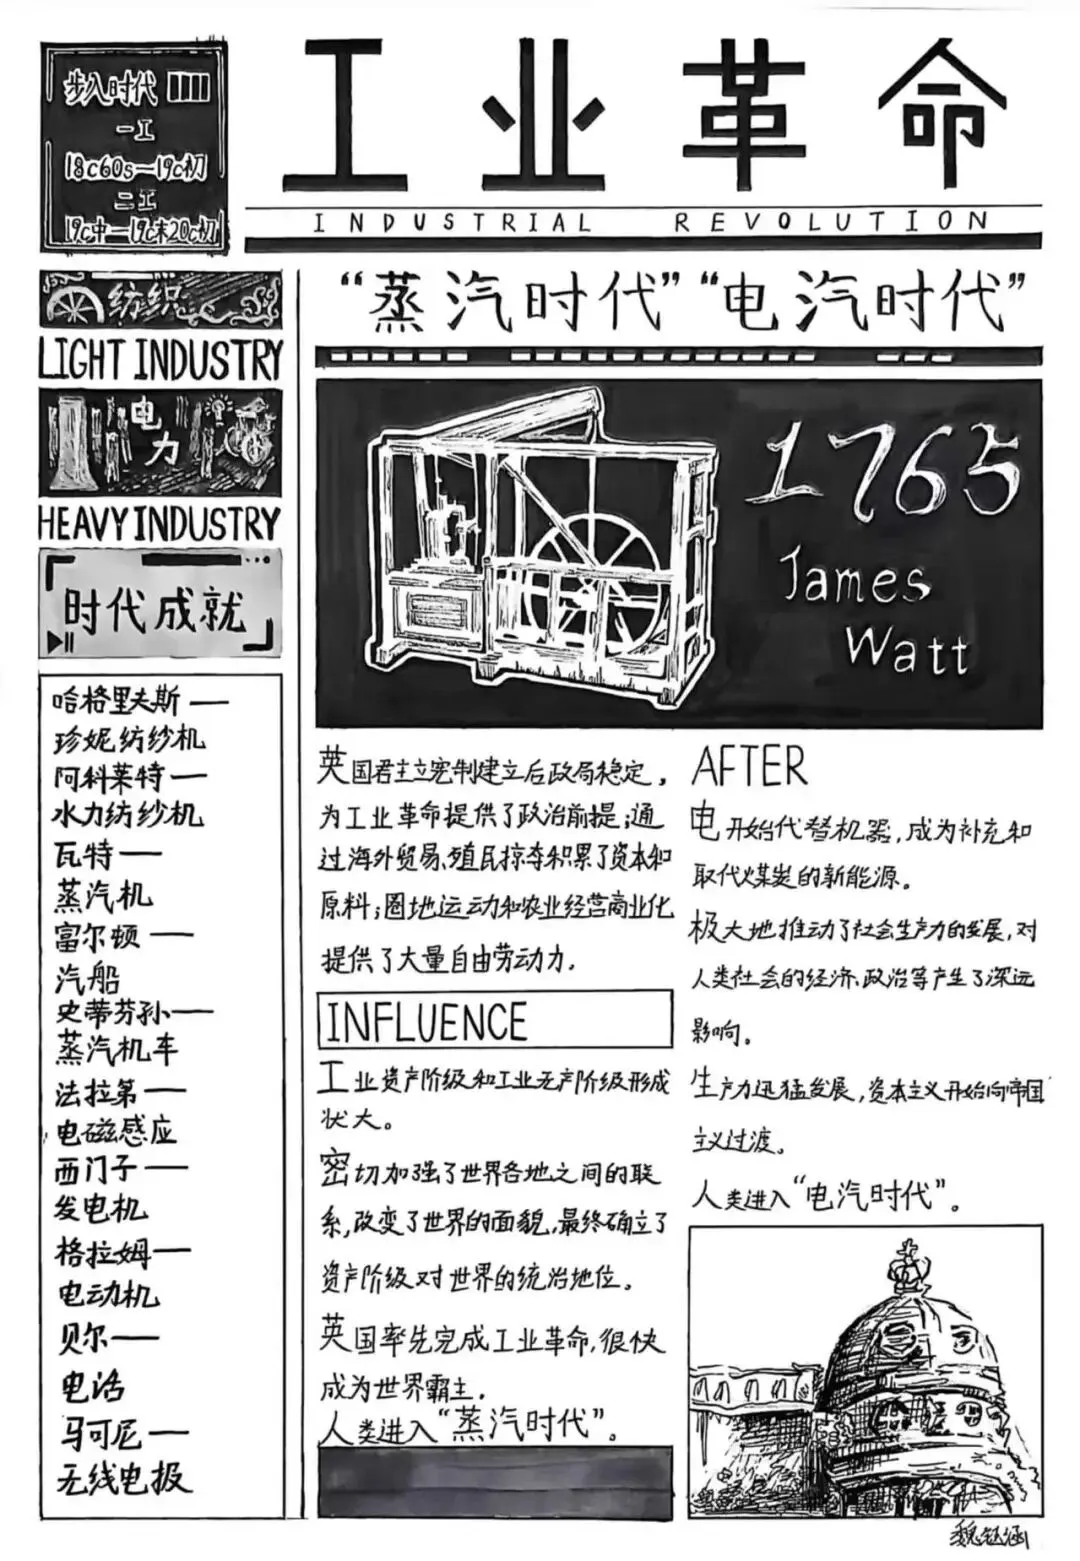 步入时代
一工
18c60s—19c初
二工
19c中—19c末20c初
工业革命
INDUSTRIAL REVOLUTION
纺织
LIGHT INDUSTRY
电力
HEAVY INDUSTRY
时代成就
哈格里夫斯—
珍妮纺纱机
阿科莱特—
水力纺纱机
瓦特—
蒸汽机
富尔顿—
汽船
史蒂芬孙—
蒸汽机车
法拉第—
电磁感应
西门子—
发电机
格拉姆—
电动机
贝尔—
电话
马可尼—
无线电报
“蒸汽时代”“电汽时代”
1765
James
Watt
英国君主立宪制建立后政局稳定，
为工业革命提供了政治前提；通
过海外贸易、殖民掠夺积累了资本和
原料；圈地运动和农业经营商业化
提供了大量自由劳动力．
INFLUENCE
工业资产阶级和工业无产阶级形成
状大。
密切加强了世界各地之间的联
系，改变了世界的面貌，最终确立了
资产阶级对世界的统治地位。
英国率先完成工业革命，很快
成为世界霸主．
人类进入“蒸汽时代”。
AFTER
电开始代替机器，成为补充和
取代煤炭的新能源。
极大地推动了社会生产力的发展，对
人类社会的经济、政治等产生了深远
影响。
生产力迅猛发展，资本主义开始向帝国
主义过渡。
人类进入“电汽时代”。
魏钰涵